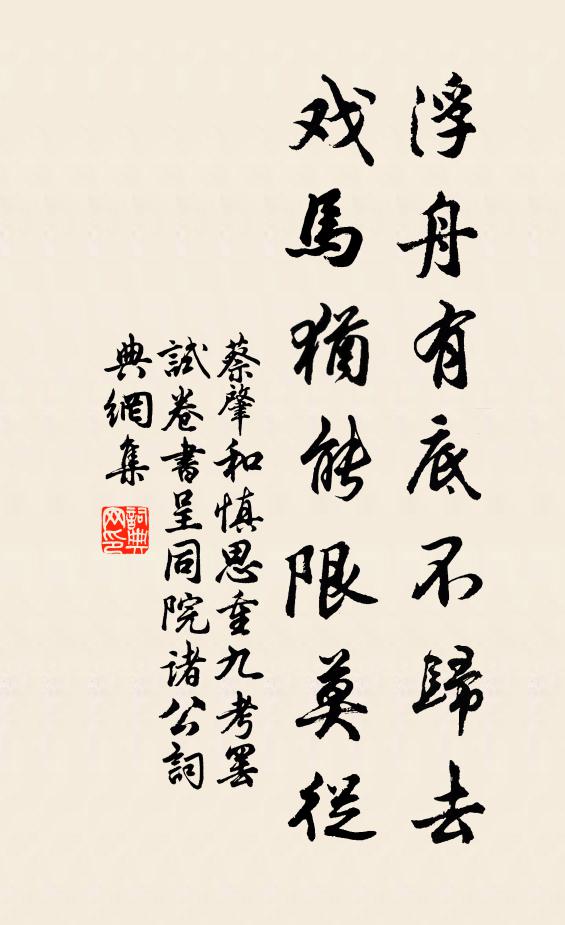 浮舟有底不歸去
戏馬猶能限莫從
蔡肇和慎思重九考罢
試卷書呈同院诸公詞
典網集
詞典网印